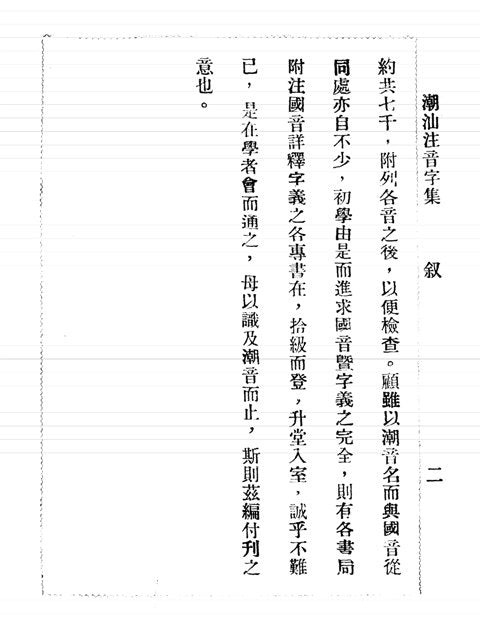 潮汕注音字集 叙 二
約共七千，附列各音之後，以便檢查。顧雖以潮音名而與國音從
同處亦自不少，初學由是而進求國音暨字義之完全，則有各書局
附注國音詳釋字義之各專書在，拾級而登，升堂入室，誠乎不難
已，是在學者會而通之，毋以識及潮音而止，斯則茲編付刊之
意也。